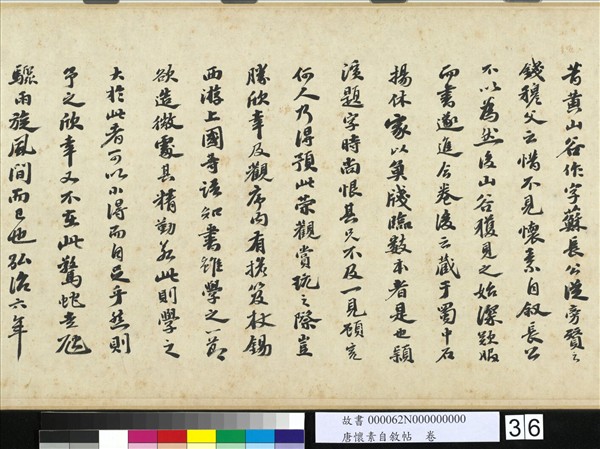 昔黃山谷作字蘇長公從旁贊之
錢穆父云惜不見懷素自叙長公
不以為然後山谷獲見之始深歎服
而書遂進今卷後云藏于蜀中石
揚休家以魚牋臨數本者是也潁
濱題字時尚恨其兄不及一見顧寬
何人乃得預此榮觀賞玩之際豈
勝欣幸及觀序內有擔笈杖錫
西游上國等語知書雖學之一節
欲造微處其精勤若此則學之
大於此者可以小得而自足乎然則
予之欣幸又不在此驚蛇走虺
驟雨旋風間而已也弘治六年
故書 000062N000000000
唐懷素自敘帖 卷
36